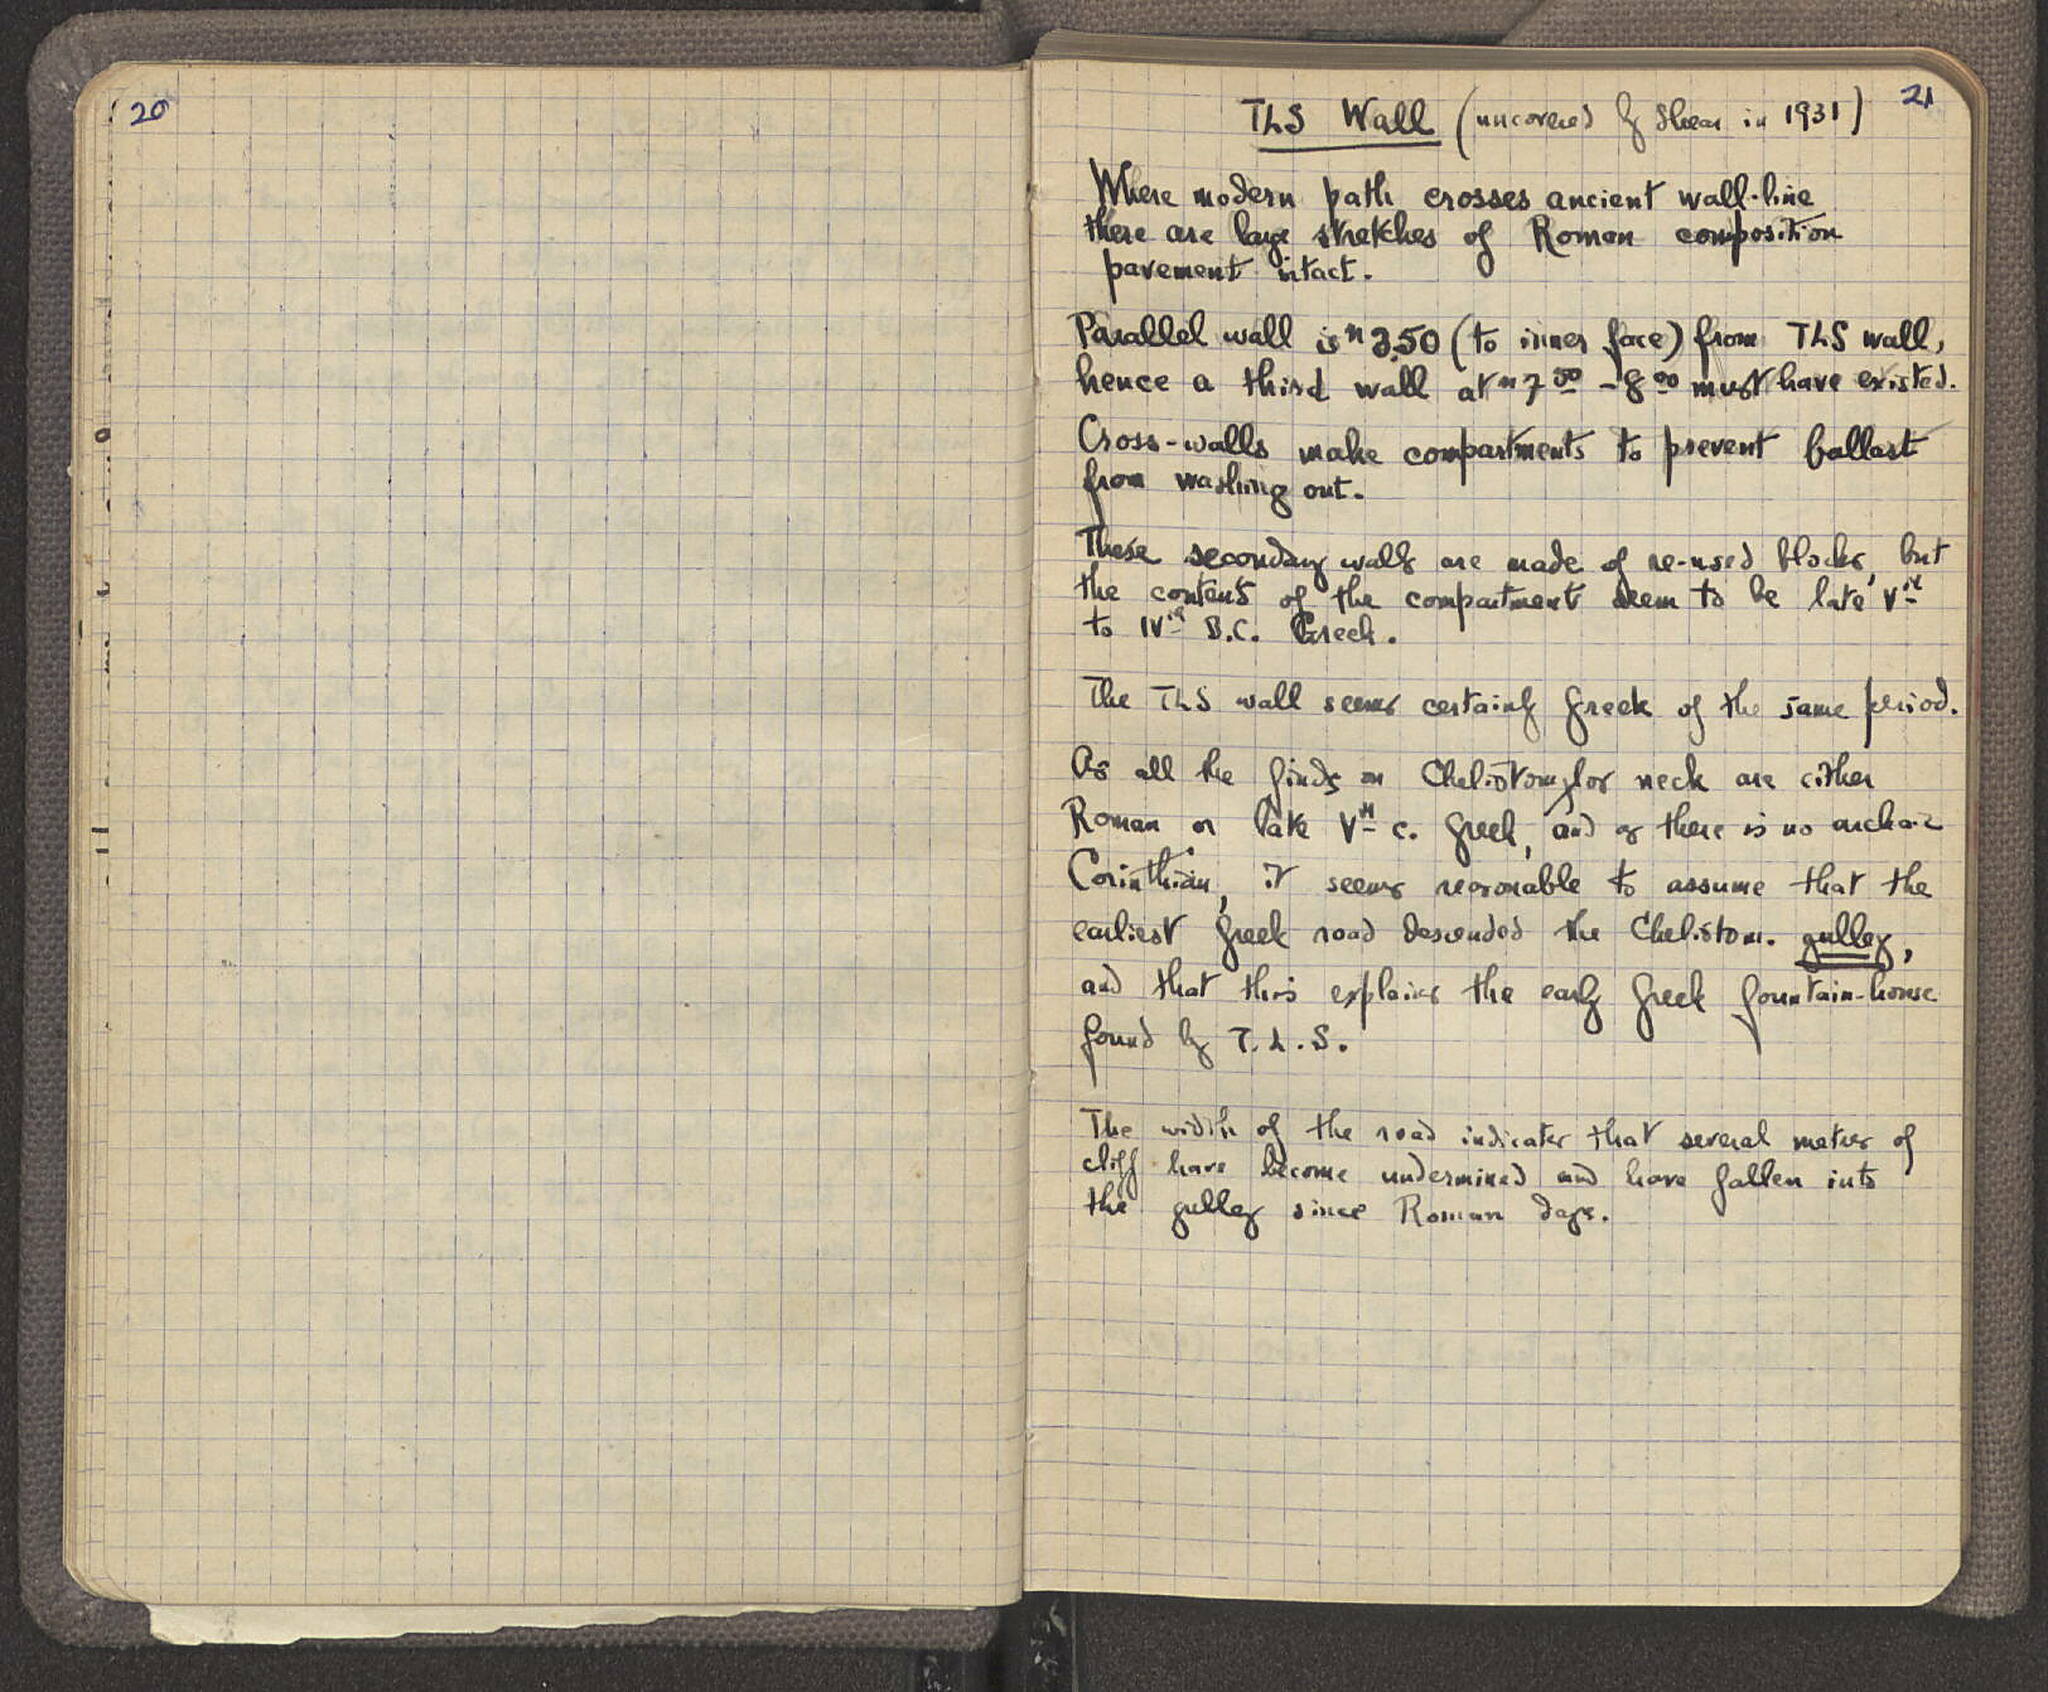 20
21
TLS Wall (uncovered by Shear in 1931)
Where modern path crosses ancient wall-line
there are large stretches of Roman composition
pavement intact.
Parallel wall is m 3.50 (to inner face) from TLS wall,
hence a third wall at m 7 50 - 8 00 must have existed.
Cross-walls make compartments to prevent ballast
from washing out.
These secondary walls are made of re-used blocks, but
the contents of the compartments seem to be late Vth
to IVth B.C. Greek.
The TLS wall seems certainly Greek of the same period.
As all the finds on Cheliotomylos neck are either
Roman or late Vth c. Greek, and as there is no archaic
Corinthian, it seems reasonable to assume that the
earliest Greek road descended the Cheliotom. gulley,
and that this explains the early Greek fountain-house
found by T.L.S.
The width of the road indicates that several metres of
cliff have become undermined and have fallen into
the gulley since Roman days.